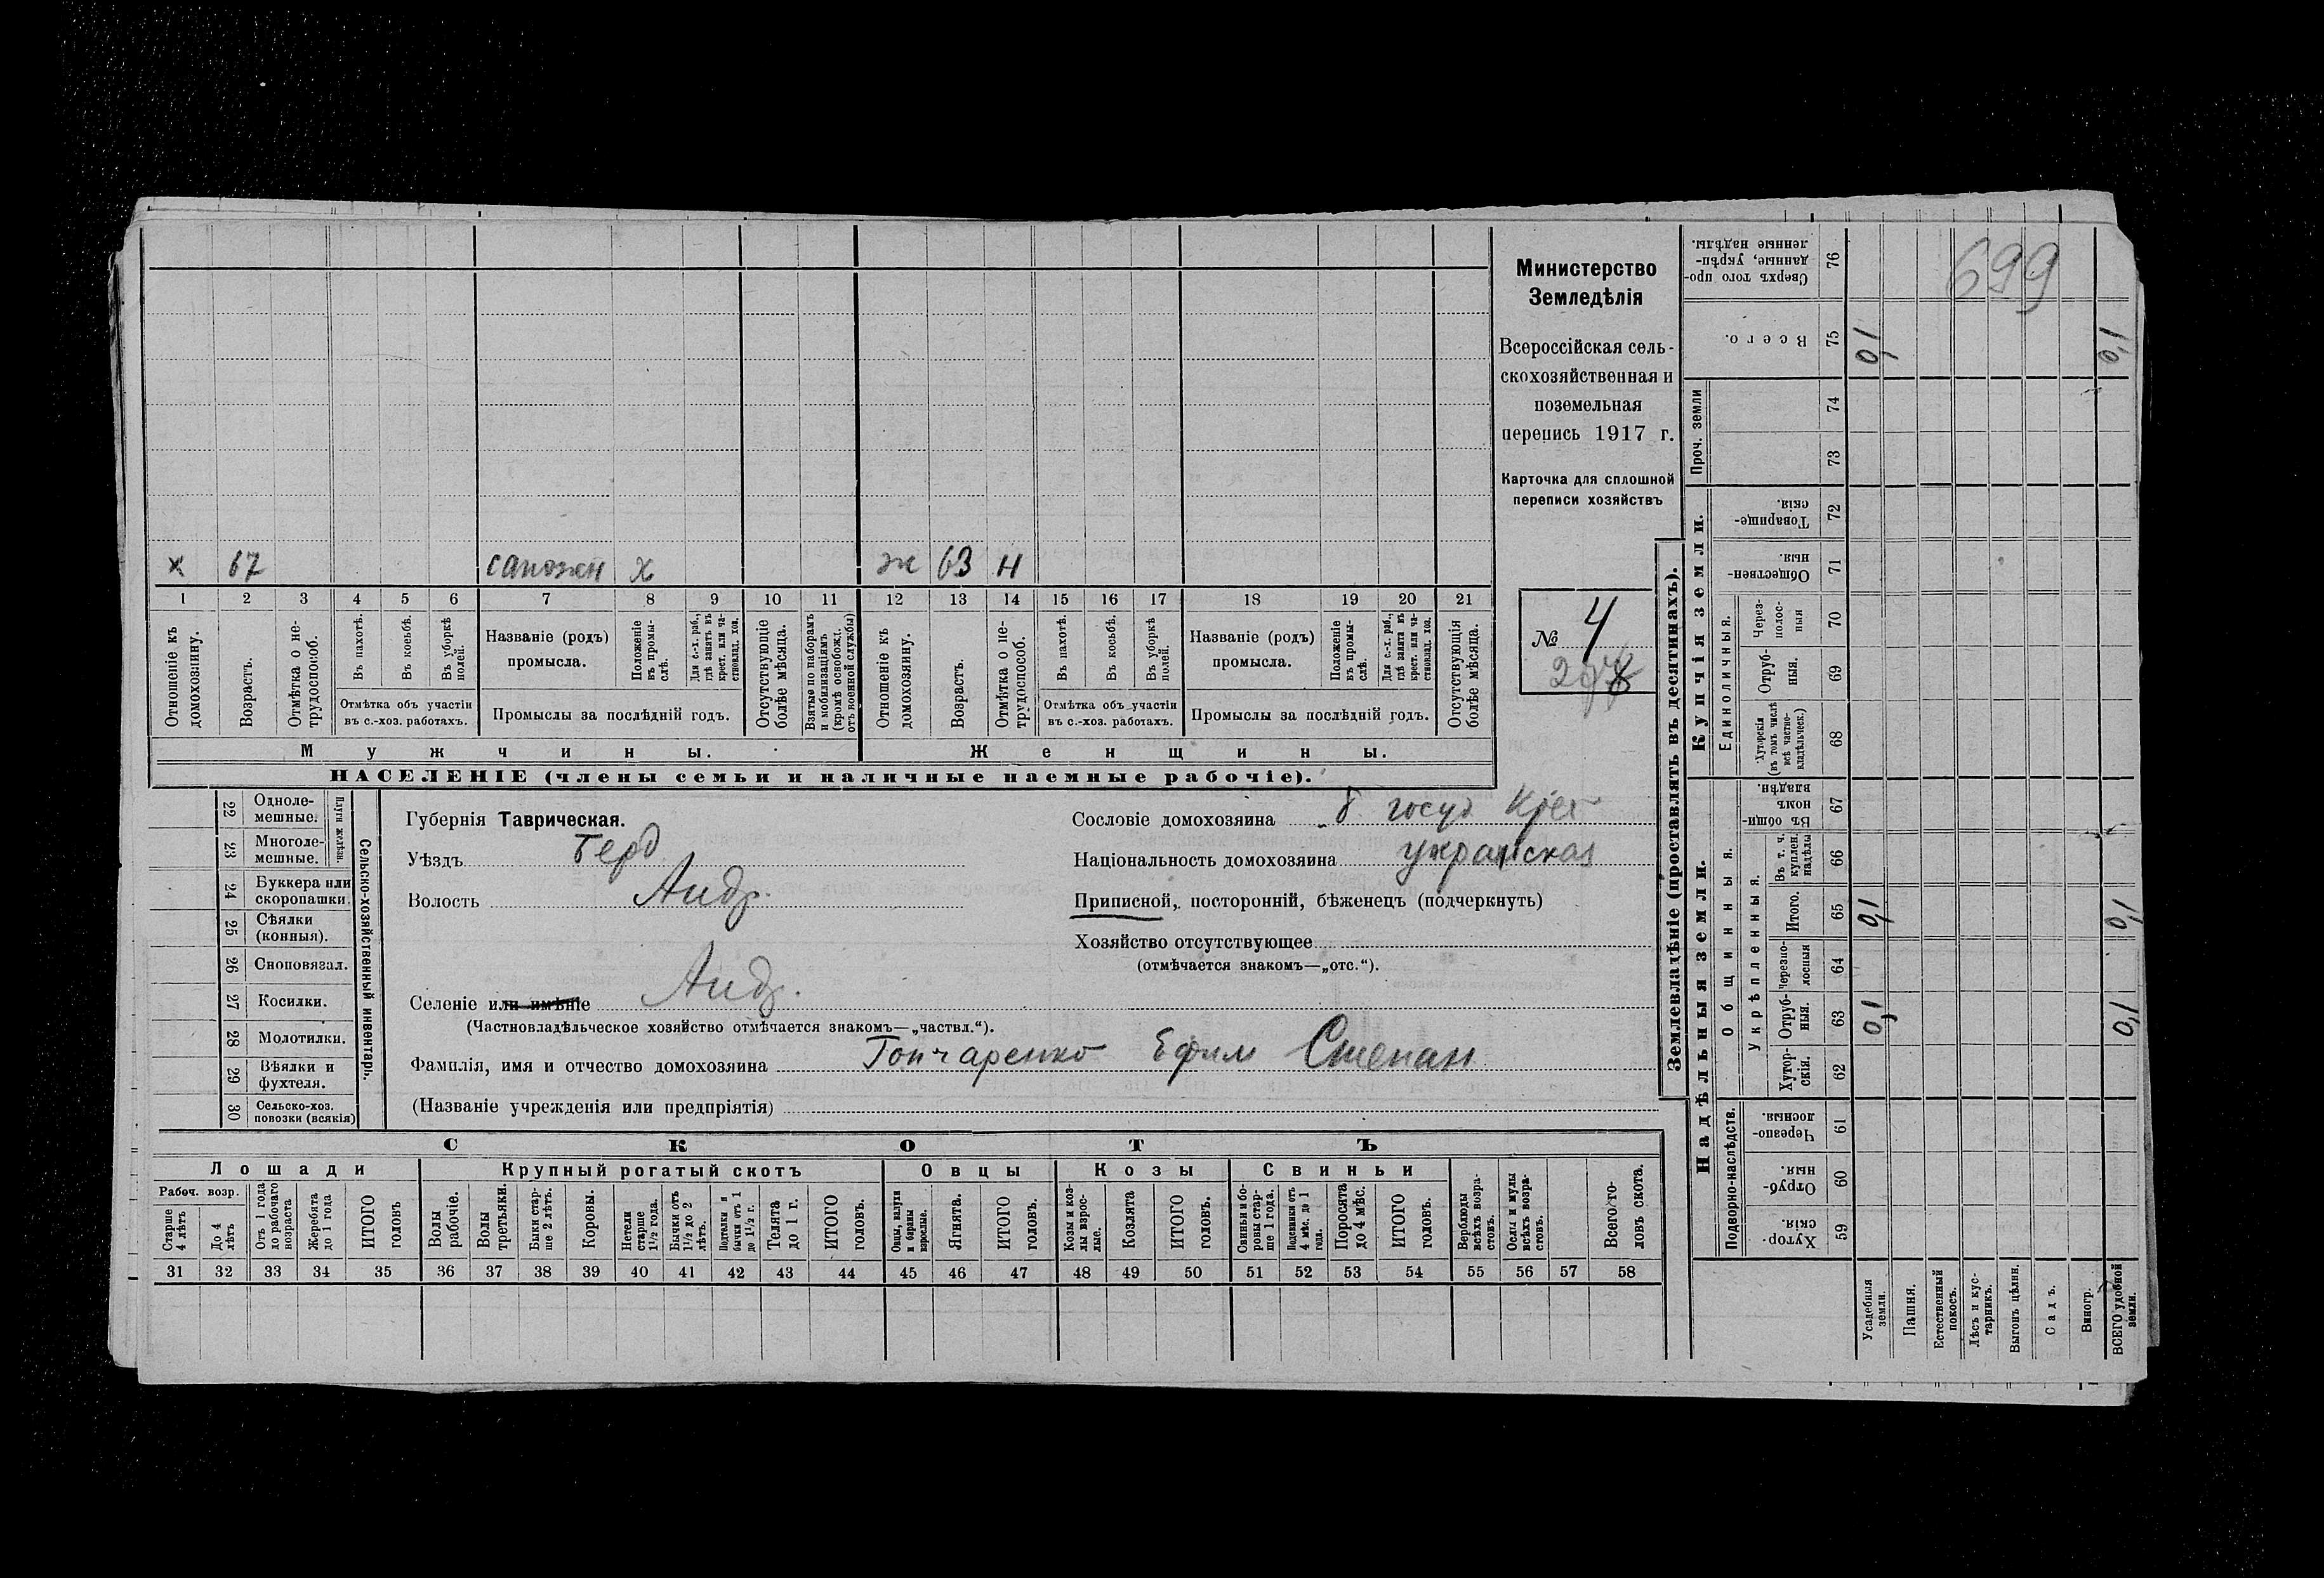 х 67 сапожн х ж 63 н
1 2 3 4 5 6 7 8 9 10 11 12 13 14 15 16 17 18 19 20 21
Отношеніе къ домохозяину.
Возрастъ.
Отмѣтка о нетрудоспособ.
Въ пахотѣ.
Въ косьбѣ.
Въ уборкѣ полей.
Отмѣтка объ участіи
въ с.-хоз. работахъ.
Названіе (родъ)
промысла.
Положеніе въ промыслѣ.
Для с.-х. раб., гдѣ занятъ въ крест. или частновлад. хоз.
Промыслы за послѣдній годъ.
Отсутствующіе болѣе мѣсяца.
Взятые по наборамъ и мобилизаціямъ (кромѣ освобожд. отъ военной службы)
Отношеніе къ домохозяину.
Возрастъ.
Отмѣтка о нетрудоспособ.
Въ пахотѣ.
Въ косьбѣ.
Въ уборкѣ полей.
Отмѣтка объ участіи
въ с.-хоз. работахъ.
Названіе (родъ)
промысла.
Положеніе въ промыслѣ.
Для с.-х. раб., гдѣ занята въ крест. или частновлад. хоз.
Промыслы за послѣдній годъ.
Отсутствующія болѣе мѣсяца.
Мужчины. Женщины.
НАСЕЛЕНІЕ (члены семьи и наличные наемные рабочіе).
Министерство
Земледѣлія
Всероссійская сель-
скохозяйственная и
поземельная
перепись 1917 г.
Карточка для сплошной
переписи хозяйствъ
№ 4
22 Одноле-
мешные.
23 Многоле-
мешные.
Плуги желѣзн.
24 Буккера или
скоропашки.
25 Сѣялки
(конныя).
26 Сноповязал.
27 Косилки.
28 Молотилки.
29 Вѣялки и
фухтеля.
30 Сельско-хоз.
повозки (всякія)
Сельско-хозяйственный инвентарь.
Губернія Таврическая.
Уѣздъ Берд
Волость Андр.
Селеніе или имѣніе Андр.
(Частновладѣльческое хозяйство отмѣчается знакомъ—„частвл.“).
Фамилія, имя и отчество домохозяина Гончаренко Ефим Степан
(Названіе учрежденія или предпріятія)
Сословіе домохозяина б. госуд Крест
Національность домохозяина украинская
Приписной, посторонній, бѣженецъ (подчеркнуть)
Хозяйство отсутствующее
(отмѣчается знакомъ—„отс.“).
СКОТЪ
Лошади Крупный рогатый скотъ Овцы Козы Свиньи
Рабоч. возр.
Старше 4 лѣтъ
До 4 лѣтъ
Отъ 1 года до рабочаго возраста
Жеребята до 1 года
ИТОГО головъ
Волы рабочіе.
Волы третьяки.
Быки старше 2 лѣтъ.
Коровы.
Нетели старше 1½ года.
Бычки отъ 1½ до 2 лѣтъ.
Подтелки и бычки отъ 1 до 1½ г.
Телята до 1 г.
ИТОГО головъ.
Овцы, валухи и бараны взрослые.
Ягнята.
ИТОГО головъ.
Козы и козлы взрослые.
Козлята
ИТОГО головъ.
Свиньи и боровы старше 1 года.
Подсвинки отъ 4 мѣс. до 1 года.
Поросята до 4 мѣс.
ИТОГО головъ.
Верблюды всѣхъ возрастовъ.
Ослы и мулы всѣхъ возрастовъ.
Всего головъ скота.
31 32 33 34 35 36 37 38 39 40 41 42 43 44 45 46 47 48 49 50 51 52 53 54 55 56 57 58
Землевладѣніе (проставлять въ десятинахъ).
699
Сверхъ того проданные, укрѣпленные надѣлы. 76
Всего. 75 0,1 0,1
Проч. земли
74
73
Купчія земли.
Товарищескія. 72
Общественныя. 71
Единоличныя.
Черезполосныя 70
Отрубныя. 69
Хуторскія (въ томъ числѣ всѣ частновладѣльческ.) 68
Надѣльныя земли.
Общинныя.
Въ общинномъ владѣн. 67
Укрѣпленныя.
Въ т. ч. куплен. надѣлы 66
Итого. 65 0,1 0,1
Черезполосныя 64
Отрубныя. 63 0,1 0,1
Хуторскія. 62
Подворно-наслѣдств.
Черезполосныя. 61
Отрубныя. 60
Хуторскія. 59
Усадебныя земли.
Пашня.
Естественный покосъ.
Лѣсъ и кустарникъ.
Выгонъ цѣлин.
Садъ.
Виногр.
ВСЕГО удобной земли.